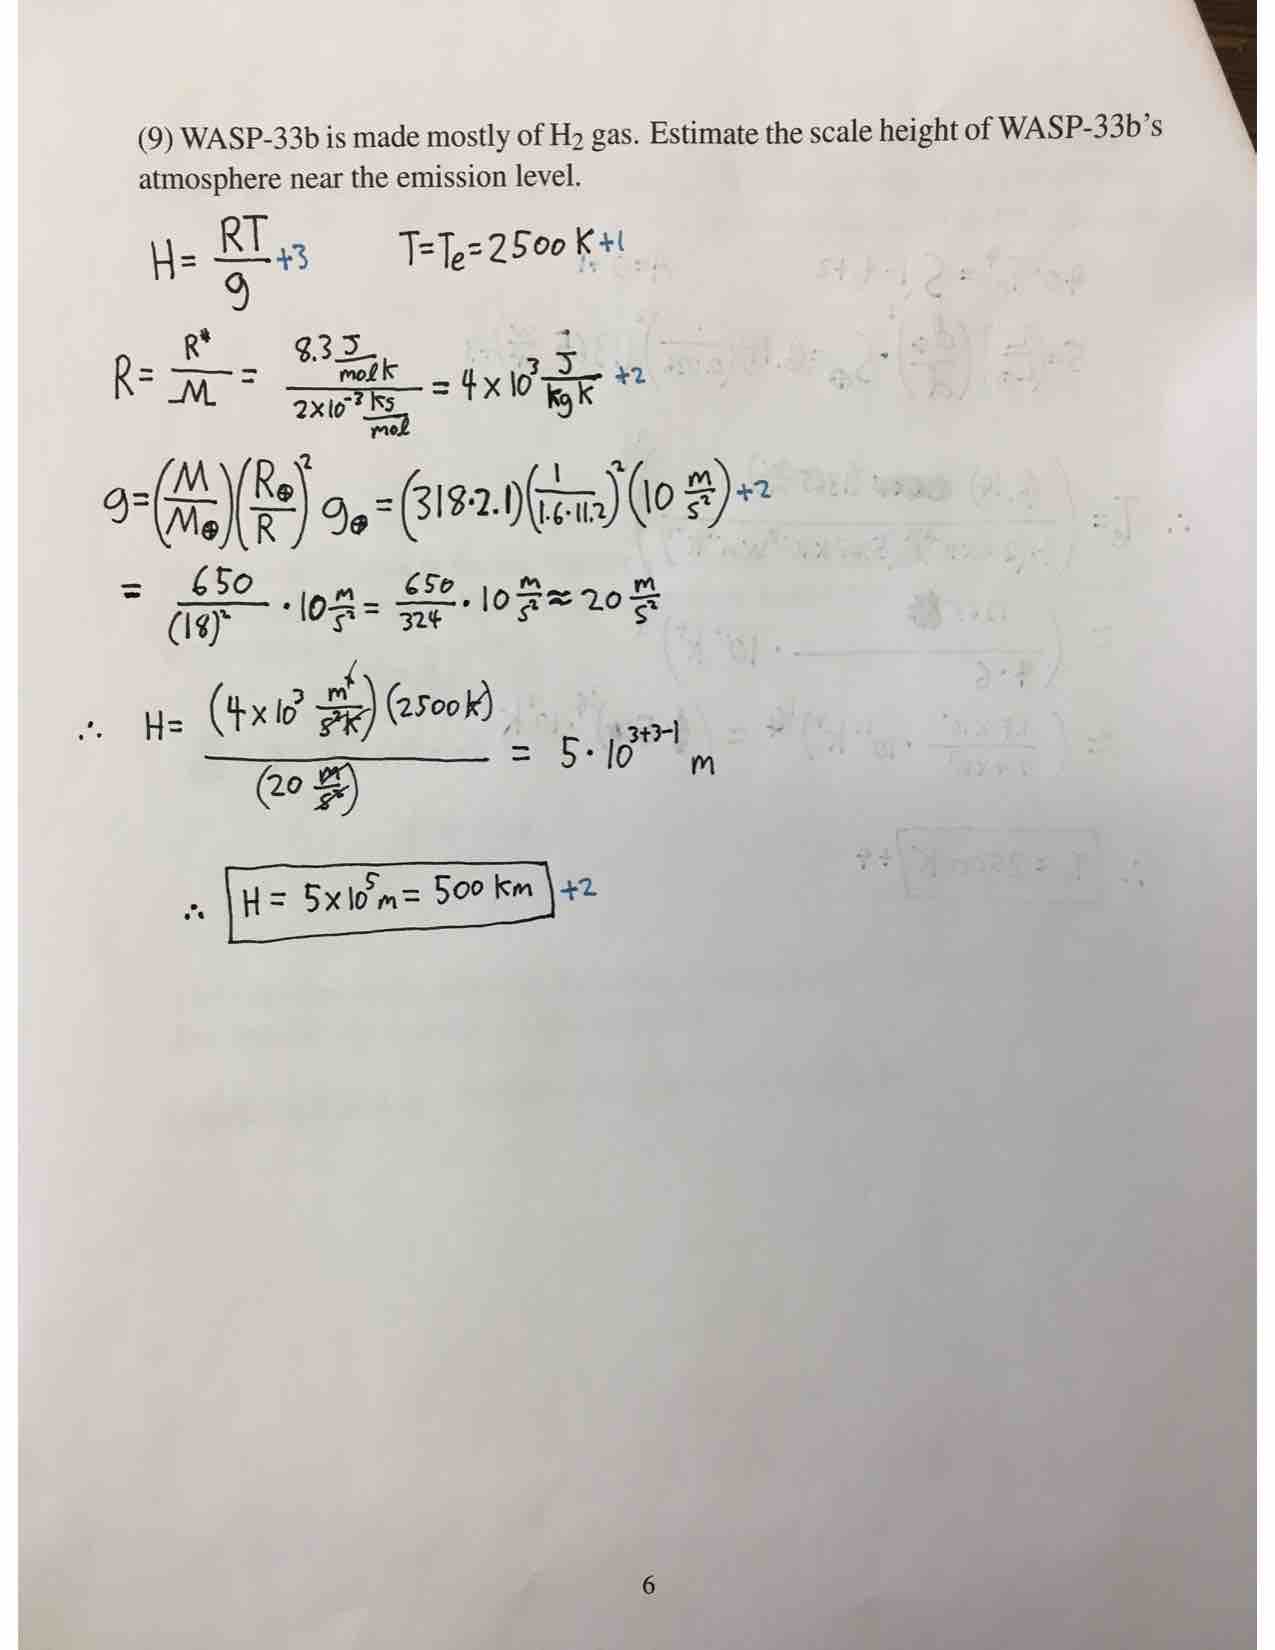 (9) WASP-33b is made mostly of H₂ gas. Estimate the scale height of WASP-33b's
atmosphere near the emission level.
H = RT/g +3 T = Te = 2500 K +1
R = R*/M = (8.3 J/mol K)/(2×10⁻³ kg/mol) = 4 × 10³ J/kg K +2
g = (M/M⊕)(R⊕/R)² g⊕ = (318·2.1)(1/1.6·11.2)² (10 m/s²) +2
= 650/(18)² · 10 m/s² = 650/324 · 10 m/s² ≈ 20 m/s²
∴ H = (4 × 10³ m²/s²K)(2500 K)/(20 m/s²) = 5 · 10³⁺³⁻¹ m
∴ H = 5×10⁵ m = 500 km +2
6